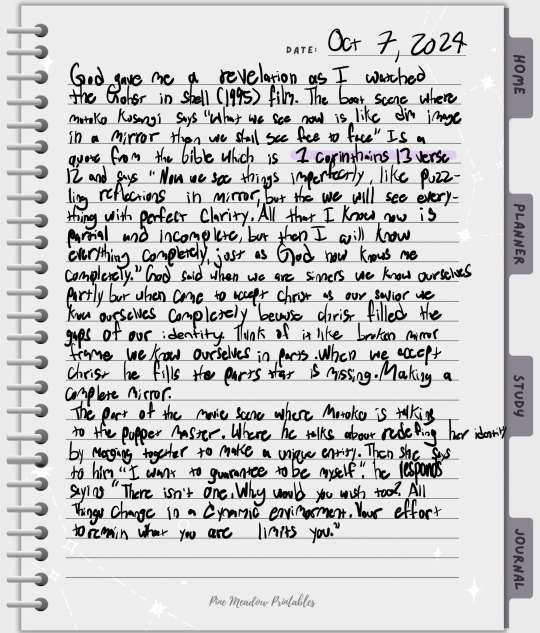 DATE: Oct 7, 2024
God gave me a revelation as I watched
the Ghost in Shell (1995) film. The boat scene where
motoko Kusangi says "What we see now is like dim image
in a mirror then we shall see face to face" Is a
quote from the bible which is 1 corinthains 13 verse
12 and says "Now we see things imperfectly, like puzz-
ling reflections in mirror, but the we will see every-
thing with perfect clarity. All that I know now is
partial and incomplete, but then I will know
everything completely, just as God now knows me
completely." God said when we are sinners we know ourselves
partly but when come to accept christ as our savior we
know ourselves completely because christ filled the
gaps of our identity. Think of it like broken mirror
frame we know ourselves in parts. When we accept
Christ he fills the parts that is missing. Making a
complete mirror.
The part of the movie scene where Motoko is talking
to the puppet master. Where he talks about redefing her identity
by merging together to make a unique entity. Then she says
to him "I want to guarantee to be myself". he responds
saying "There isn't one. Why would you wish too? All
Things change in a dynamic envirnorment. Your effort
to remain what you are limits you."
Pine Meadow Printables
HOME
PLANNER
STUDY
JOURNAL